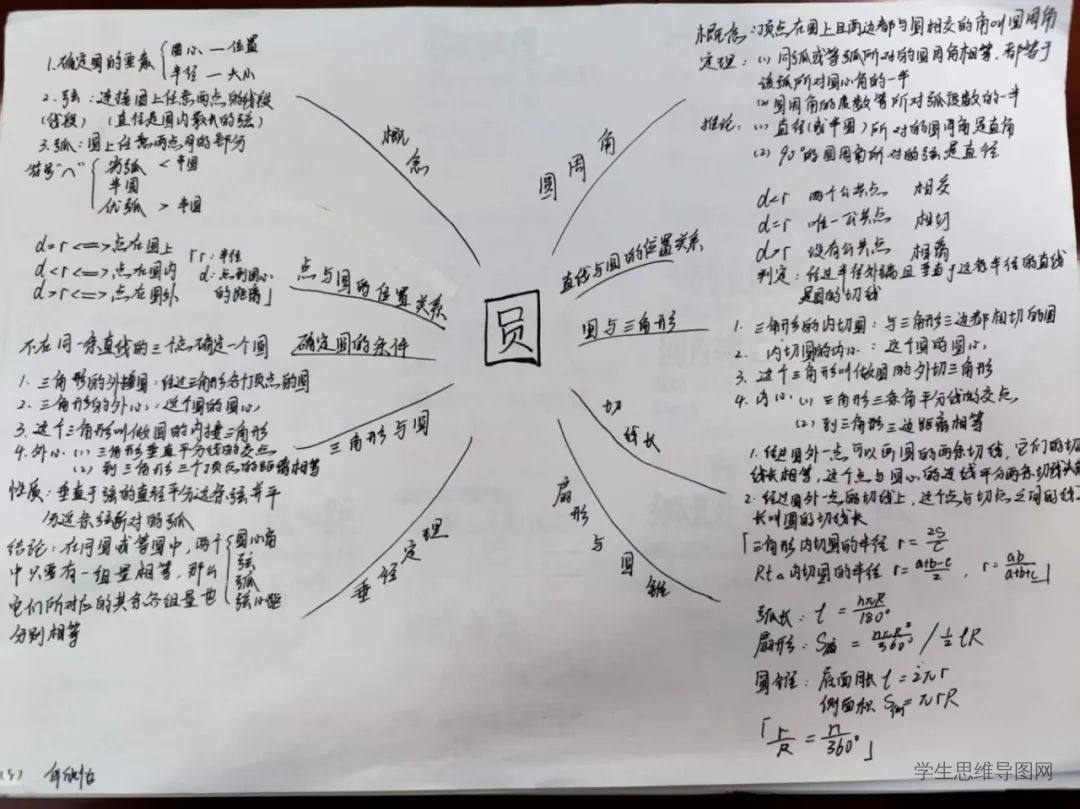 圆
概念
1.确定圆的要素 { 圆心 — 位置
半径 — 大小
2.弦：连接圆上任意两点的线段
(线段) (直径是圆内最大的弦)
3.弧：圆上任意两点间的部分
符号"⌒" { 劣弧 < 半圆
半圆
优弧 > 半圆
点与圆的位置关系
d=r <=> 点在圆上
d<r <=> 点在圆内
d>r <=> 点在圆外
「r:半径
d:点到圆心
的距离」
确定圆的条件
不在同一条直线的三个点确定一个圆
三角形与圆
1. 三角形的外接圆：经过三角形各个顶点的圆
2. 三角形的外心：这个圆的圆心
3. 这个三角形叫做圆的内接三角形
4. 外心 (1) 三角形垂直平分线的交点
(2) 到三角形三个顶点的距离相等
垂径定理
性质：垂直于弦的直径平分这条弦并平
分这条弦所对的弧
结论：在同圆或等圆中，两个 { 圆心角
弦
弧
弦心距
中只要有一组量相等，那么
它们所对应的其余各组量也
分别相等
圆周角
概念：顶点在圆上且两边都与圆相交的角叫圆周角
定理：(1) 同弧或等弧所对的圆周角相等，都等于
该弧所对圆心角的一半
(2) 圆周角的度数等所对弧度数的一半
推论：(1) 直径(或半圆)所对的圆周角是直角
(2) 90°的圆周角所对的弦是直径
直线与圆的位置关系
d<r 两个公共点 相交
d=r 唯一公共点 相切
d>r 没有公共点 相离
判定：经过半径外端且垂直于这条半径的直线
是圆的切线
圆与三角形
1. 三角形的内切圆：与三角形三边都相切的圆
2. 内切圆的内心：这个圆的圆心
3. 这个三角形叫做圆的外切三角形
4. 内心 (1) 三角形三条角平分线的交点
(2) 到三角形三边距离相等
切线长
1. 经过圆外一点可以画圆的两条切线，它们的切
线长相等，这个点与圆心的连线平分两条切线
2. 经过圆外一点的切线上，这个点与切点之间的线
长叫圆的切线长
「三角形内切圆的半径 r = 2S/C
Rt△内切圆的半径 r = (a+b-c)/2 , r = ab/(a+b+c)」
扇形与圆锥
弧长：l = nπR/180°
扇形：S扇 = nπR²/360° / ½lR
圆锥：底面周长 l = 2πr
侧面积 S侧 = πrR
「r/R = n/360°」
学生思维导图网